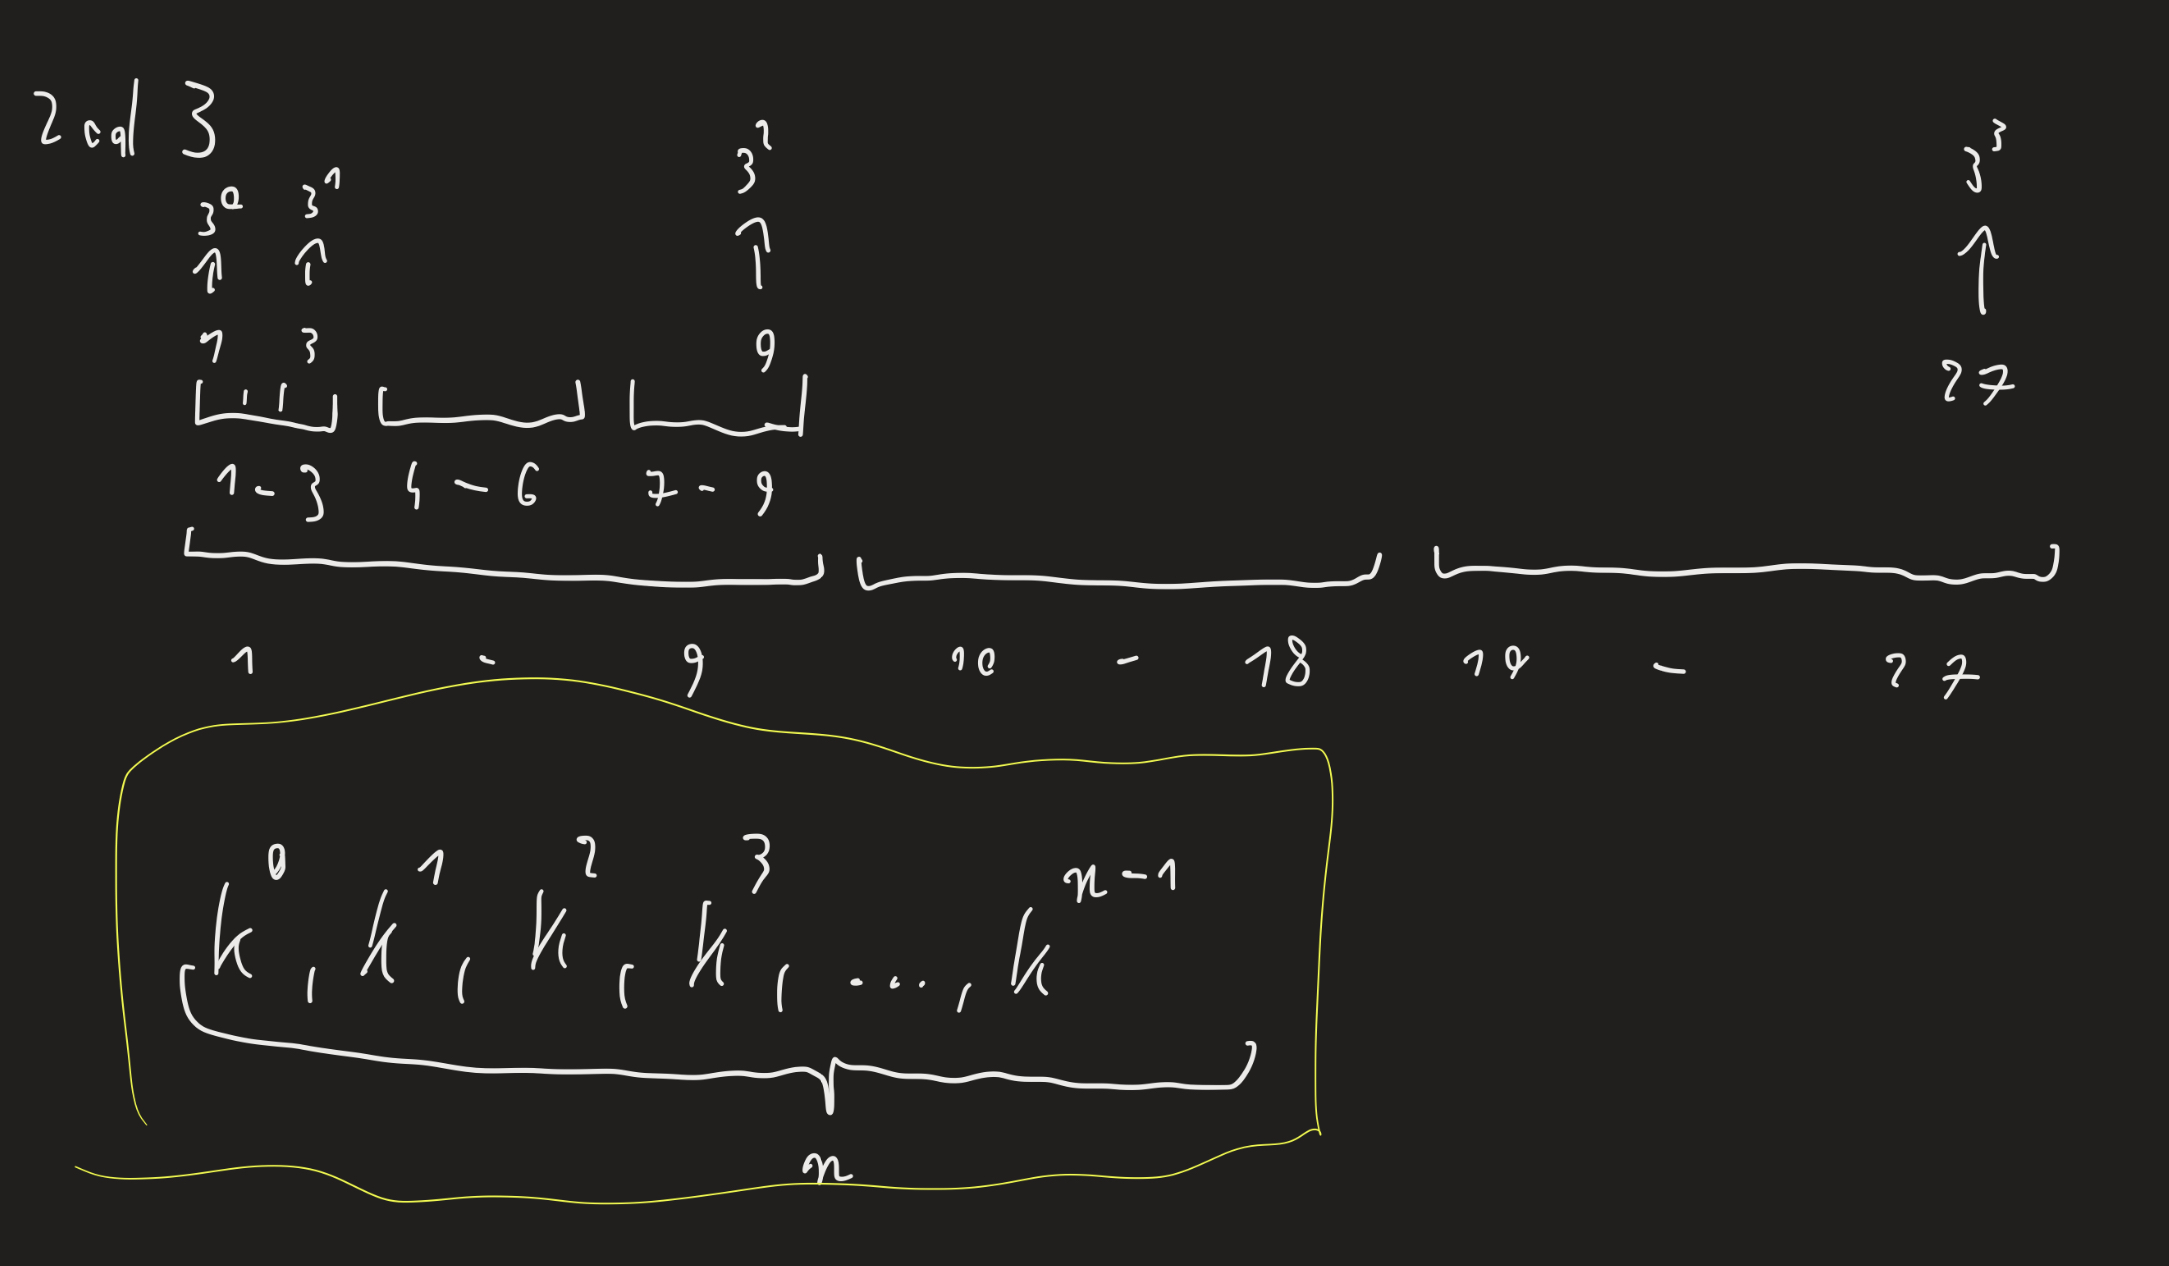 2 cql 3
3⁰ 3¹ 3² 3³
↑ ↑ ↑ ↑
1 3 9 27
1 - 3 4 - 6 7 - 9
1 - 9 10 - 18 19 - 27
k⁰, k¹, k², k³, ..., kⁿ⁻¹
n